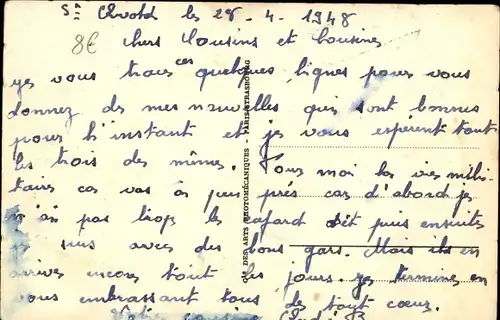 St Avold les 28 - 4 - 1948
8€
chers Cousins et Cousines
je vous trace ces quelques lignes pour vous
donnez de mes nouvelles qui sont bonnes
pour l'instant et je vous espérent tout
les trois des mêmes. Pour moi la vies mili-
taires ca vas à peu près car d'abord je
n'ai pas trop le cafard set puis ensuite
je suis avec des bons gars. Mais ils en
arrives encore tout les jours. je termine en
vous embrassant tous de tout cœur.
Votre cousin
DES ARTS PHOTOMÉCANIQUES - PARIS-STRASBOURG